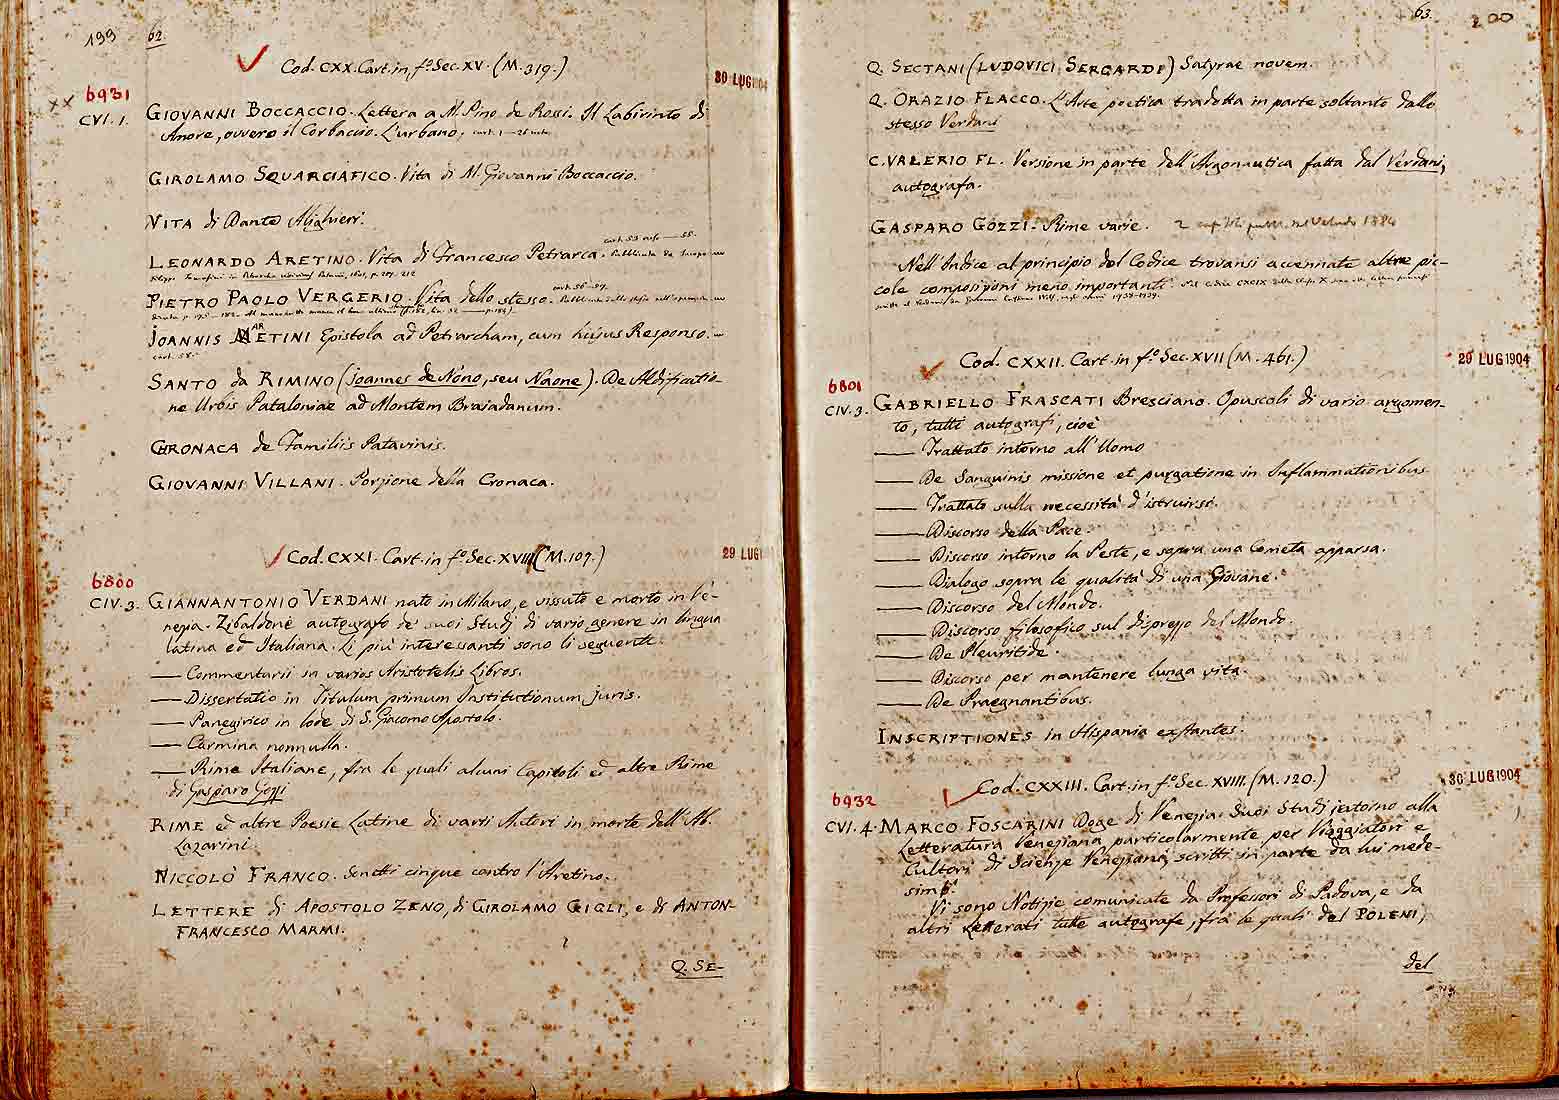 199
62.
Cod. CXX. Cart. in fº. Sec. XV. (M. 319.)
30 LUG 1904
XX 6931
CVI. 1.
GIOVANNI BOCCACCIO. Lettera a M. Pino de Rossi. Il Labirinto di
Amore, ovvero il Corbaccio. L'urbano.
GIROLAMO SQUARCIAFICO. Vita di M. Giovanni Boccaccio.
VITA di Dante Alighieri.
LEONARDO ARETINO. Vita di Francesco Petrarca.
PIETRO PAOLO VERGERIO. Vita dello stesso.
JOANNIS ARETINI Epistola ad Petrarcham, cum hujus Responso.
cart. 58.
SANTO da RIMINO (joannes de Nono, seu Naone). De Aldificatio-
ne Urbis Pataloniae ad Montem Braiadanum.
CHRONACA de Familiis Patavinis.
GIOVANNI VILLANI. Porzione della Cronaca.
Cod. CXXI. Cart. in fº. Sec. XVIII (M. 107.)
29 LUG
6800
CIV. 3.
GIANNANTONIO VERDANI nato in Milano, e vissuto e morto in Ve-
nezia. Zibaldone autografo de' suoi Studj di vario genere in lingua
latina ed Italiana. Li più interessanti sono li seguenti.
— Commentarii in varios Aristotelis Libros.
— Dissertatio in Titulum primum Institutionum juris.
— Panegirico in lode di S. Giacomo Apostolo.
— Carmina nonnulla.
— Rime Italiane, fra le quali alcuni Capitoli ed altre Rime
di Gasparo Gozzi
RIME ed altre Poesie Latine di varii Autori in morte dell'Ab.
Lazarini.
NICCOLÒ FRANCO. Sonetti cinque contro l'Aretino.
LETTERE di APOSTOLO ZENO, di GIROLAMO GIGLI, e di ANTON-
FRANCESCO MARMI.
Q. SE-
63.
200
Q. SECTANI (LUDOVICI SERGARDI) Satyrae novem.
Q. ORAZIO FLACCO. L'Arte poetica tradotta in parte soltanto dallo
stesso Verdani
C. VALERIO FL. Versione in parte dell'Argonautica fatta dal Verdani,
autografa.
GASPARO GOZZI. Rime varie. 2
Nell'Indice al principio del Codice trovansi accennate altre pic-
cole composizioni meno importanti.
Cod. CXXII. Cart. in fº. Sec. XVII (M. 461.)
29 LUG 1904
6801
CIV. 3.
GABRIELLO FRASCATI Bresciano. Opuscoli di vario argomen-
to, tutti autografi, cioè
— Trattato intorno all'Uomo
— De Sanguinis missione et purgatione in Inflammationibus
— Trattato sulla necessità d'istruirsi.
— Discorso della Pace.
— Discorso intorno la Peste, e sopra una Cometa apparsa.
— Dialogo sopra le qualità di una Giovane.
— Discorso del Mondo.
— Discorso filosofico sul disprezzo del Mondo.
— De Pleuritide.
— Discorso per mantenere lunga vita.
— De Praegnantibus.
INSCRIPTIONES in Hispania exstantes.
Cod. CXXIII. Cart. in fº. Sec. XVIII. (M. 120.)
30 LUG 1904
6932
CVI. 4.
MARCO FOSCARINI Doge di Venezia. Suoi Studj intorno alla
Letteratura Veneziana particolarmente per Viaggiatori e
Cultori di Scienze Veneziani, scritti in parte da lui mede-
simo.
Vi sono Notizie comunicate da Professori di Padova, e da
altri Letterati tutte autografe, fra le quali del POLENI,
del